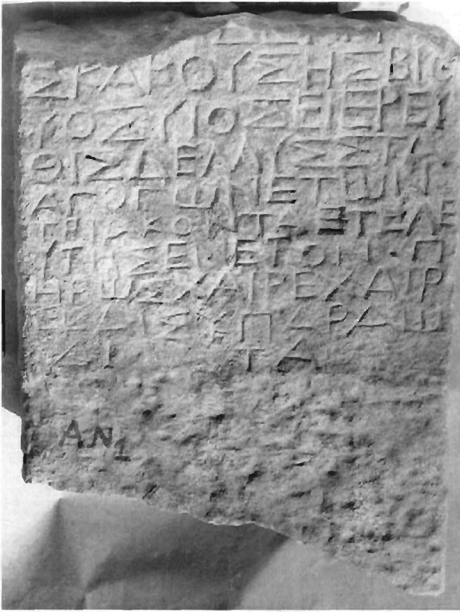 ΣΚΑΚΟΥΣΗΣΒΙΟ
ΥΟΣΥΙΟΣΕΙΕΡΕΥ
ΘΙΣΔΕΛΥΣΣΤΑ
ΑΓΟΓΩΝΕΤΩΝΤ
ΤΡΙΑΚΟΝΤΑΕΤΕΛΕ
ΥΤΗΣΕ ΕΤΟΥ Π
ΗΡΩΣΧΑΙΡΕΧΑΙΡ
ΕΚΑΙΣΥΠΑΡΑΩ
ΔΙ ΤΑ
AN1